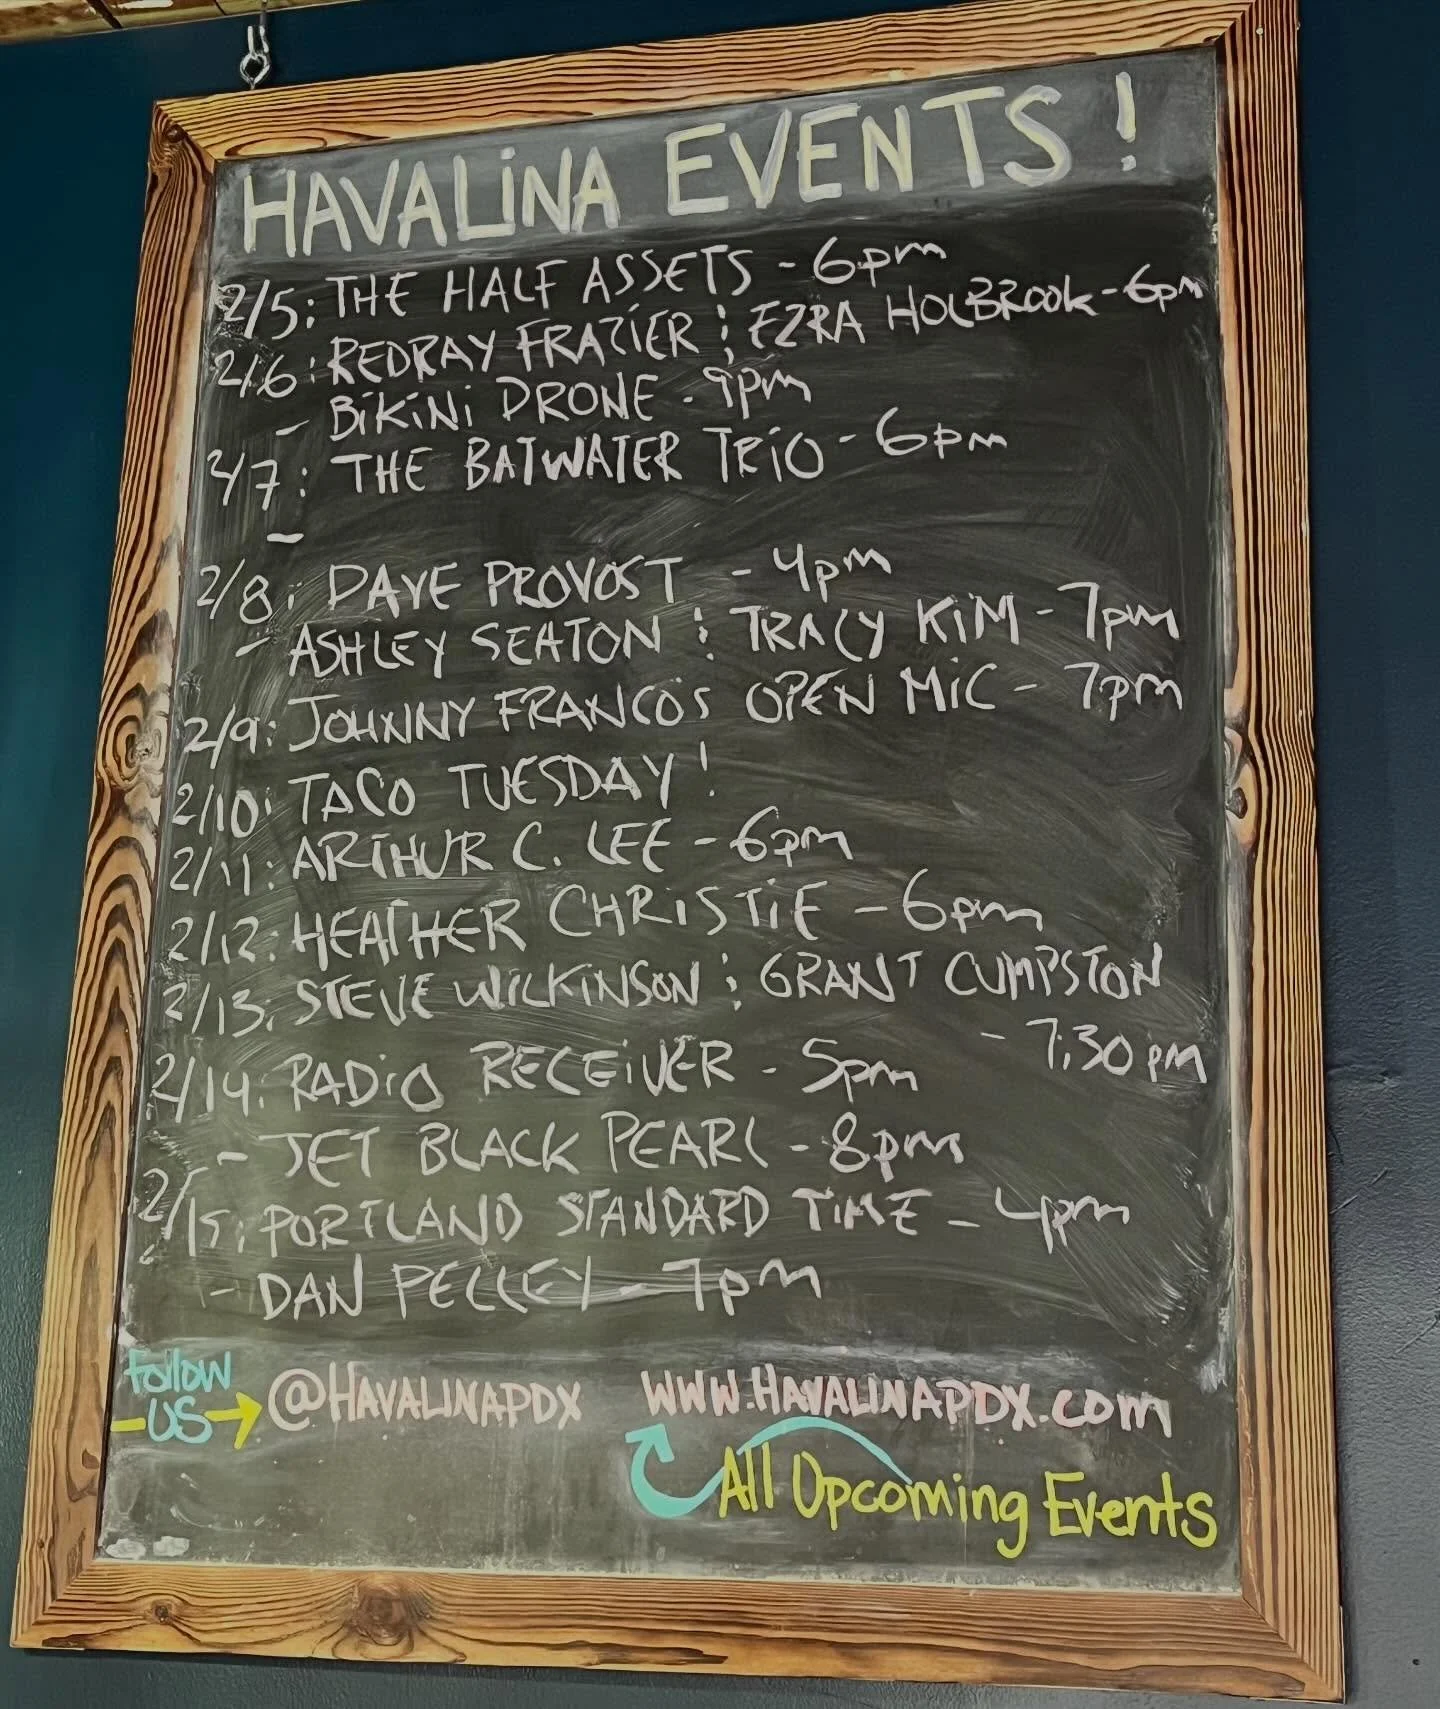 HAVALiNA EVENTS!
2/5: THE HALF ASSETS - 6pm
2/6: REDRAY FRAZIER & EZRA HOLBROOK - 6pm
- BiKiNi DRONE - 9pm
2/7: THE BATWATER TRiO - 6pm
-
2/8: DAVE PROVOST - 4pm
- ASHLEY SEATON & TRACY KiM - 7pm
2/9: JOHNNY FRANCO'S OPEN MiC - 7pm
2/10: TACO TUESDAY!
2/11: ARTHUR C. LEE - 6pm
2/12: HEATHER CHRiSTiE - 6pm
2/13: STEVE WiLKiNSON & GRANT CUMPSTON
- 7:30pm
2/14: RADiO RECEiVER - 5pm
- JET BLACK PEARL - 8pm
2/15: PORTLAND STANDARD TiME - 4pm
- DAN PELLEY - 7pm
Follow
US
@HAVALINAPDX
WWW.HAVALINAPDX.com
All Upcoming Events